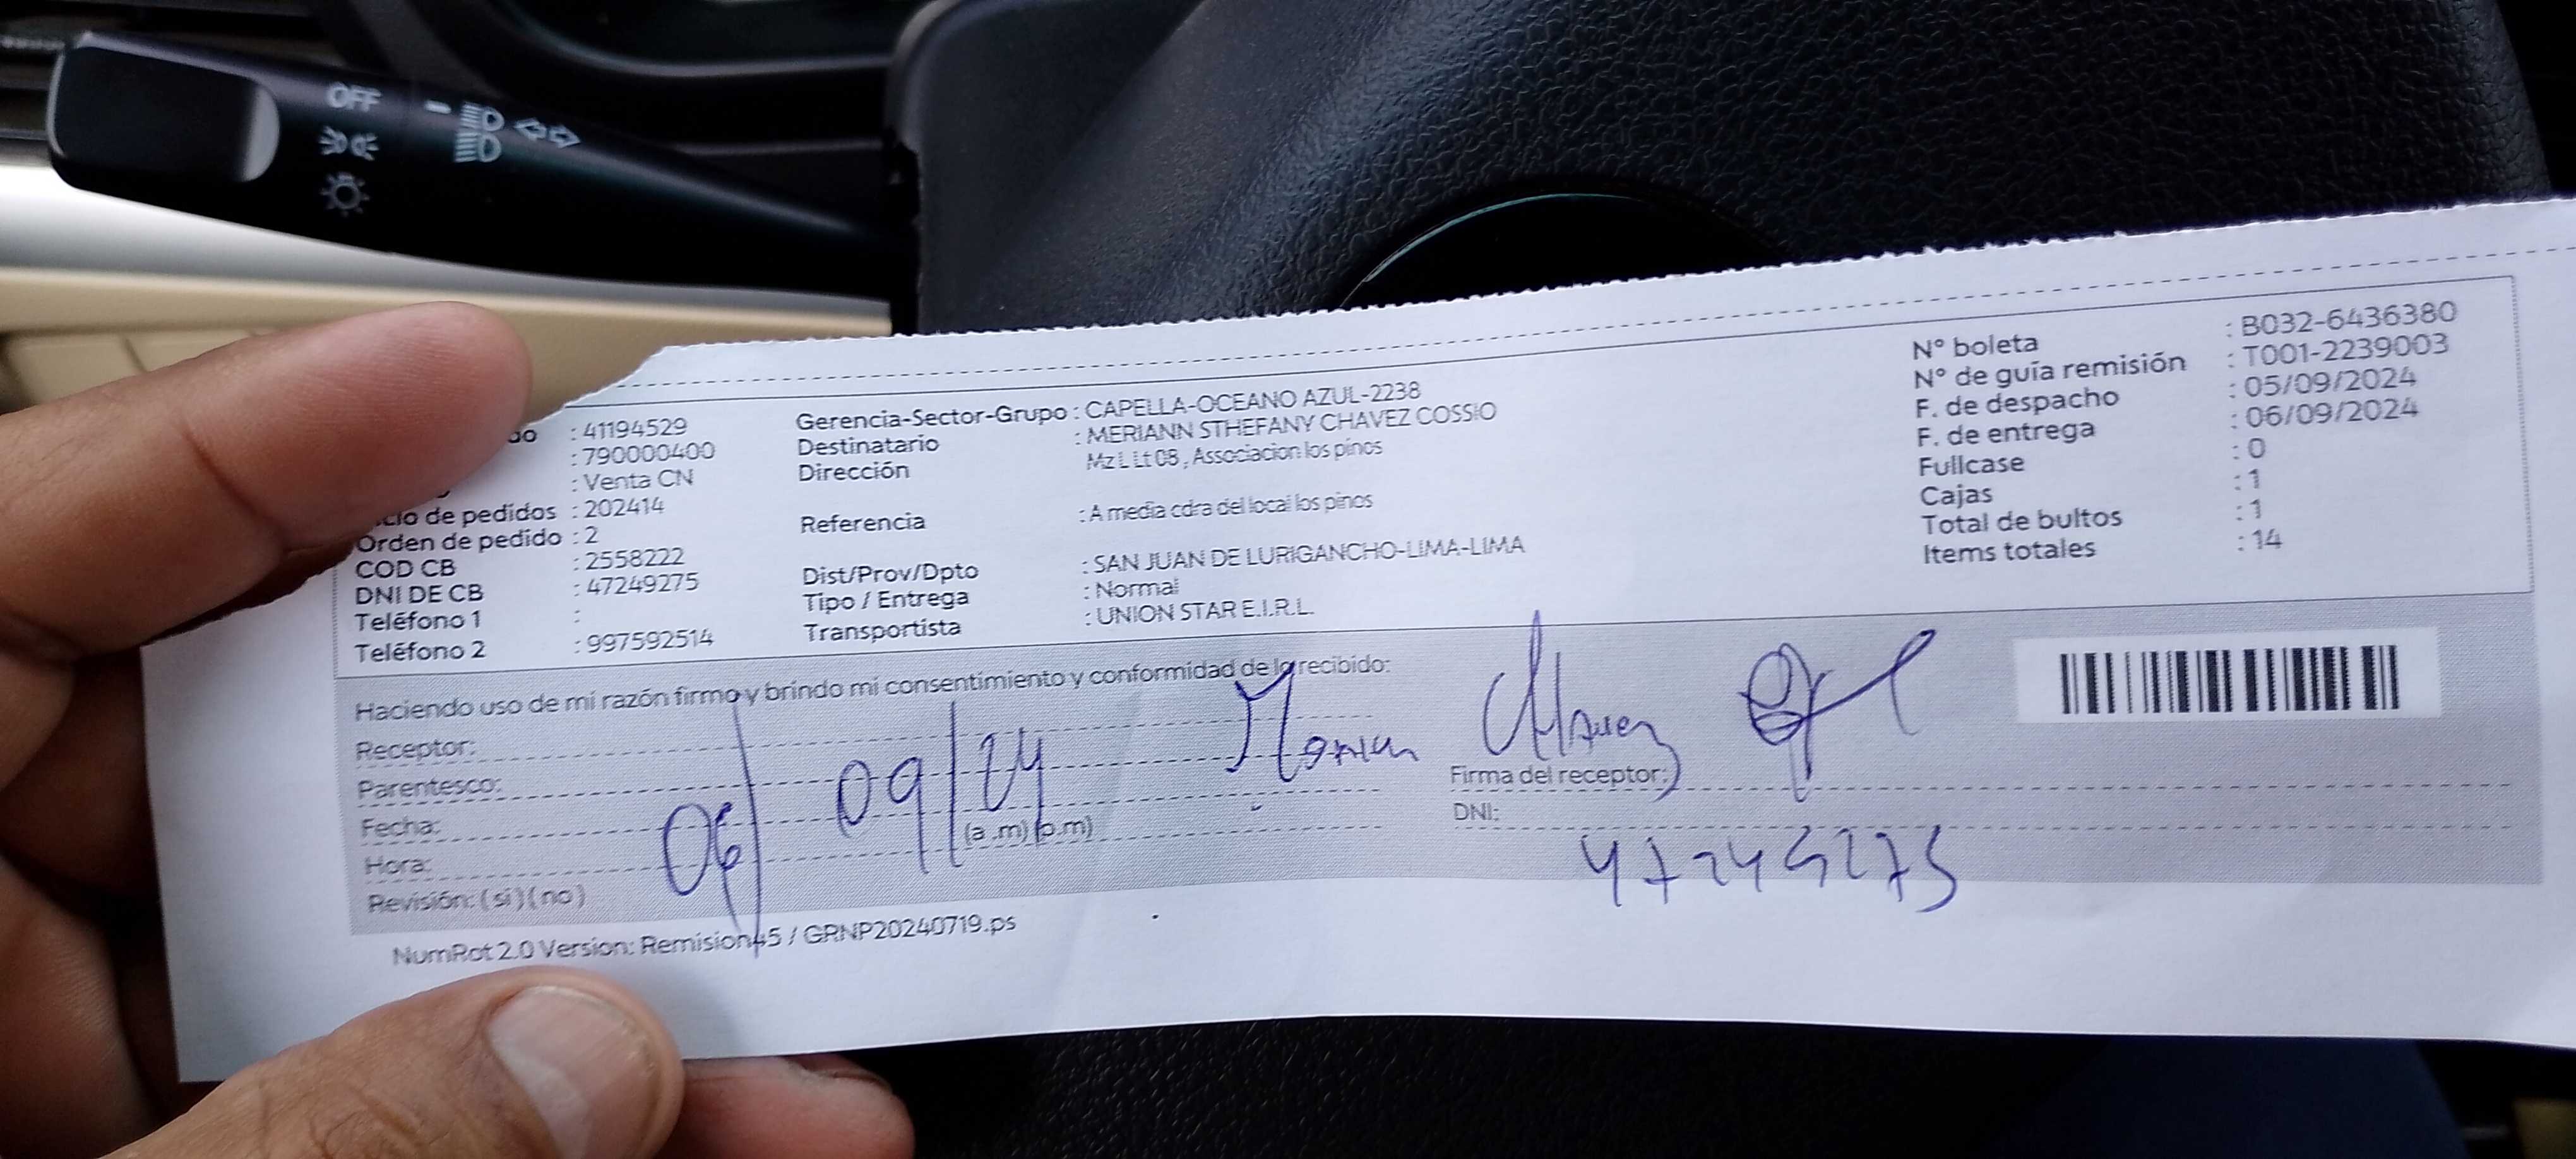 OFF
: 41194529
: 790000400
: Venta CN
de pedidos : 202414
Orden de pedido : 2
COD CB : 2558222
DNI DE CB : 47249275
Teléfono 1 :
Teléfono 2 : 997592514
Gerencia-Sector-Grupo : CAPELLA-OCEANO AZUL-2238
Destinatario : MERIANN STHEFANY CHAVEZ COSSIO
Dirección Mz L Lt 08 , Associacion los pinos
Referencia : A media cdra del local los pinos
Dist/Prov/Dpto : SAN JUAN DE LURIGANCHO-LIMA-LIMA
Tipo / Entrega : Normal
Transportista : UNION STAR E.I.R.L.
N° boleta : B032-6436380
N° de guía remisión : T001-2239003
F. de despacho : 05/09/2024
F. de entrega : 06/09/2024
Fullcase : 0
Cajas : 1
Total de bultos : 1
Items totales : 14
Haciendo uso de mi razón firmo y brindo mi consentimiento y conformidad de lo recibido:
Receptor:
Parentesco:
Fecha: 06/09/24
Hora: (a.m) (p.m)
Revisión: (si) (no)
Firma del receptor:
DNI:
47249275
NumRot 2.0 Version: Remision45 / GRNP20240719.ps